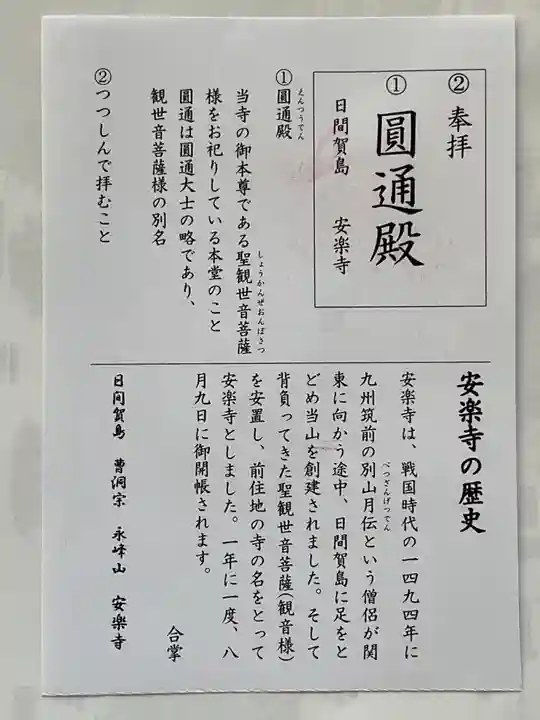 ② 奉拝
① 圓通殿
日間賀島 安楽寺
①圓通殿
えんつうでん
当寺の御本尊である聖観世音菩薩
しょうかんぜおんぼさつ
様をお祀りしている本堂のこと
圓通は圓通大士の略であり、
観世音菩薩様の別名
②つつしんで拝むこと
安楽寺の歴史
安楽寺は、戦国時代の一四九四年に
九州筑前の別山月伝という僧侶が関
べつざんげつでん
東に向かう途中、日間賀島に足をと
どめ当山を創建されました。そして
背負ってきた聖観世音菩薩(観音様)
を安置し、前住地の寺の名をとって
安楽寺としました。一年に一度、八
月九日に御開帳されます。
合掌
日间賀島 曹洞宗 永峰山 安楽寺